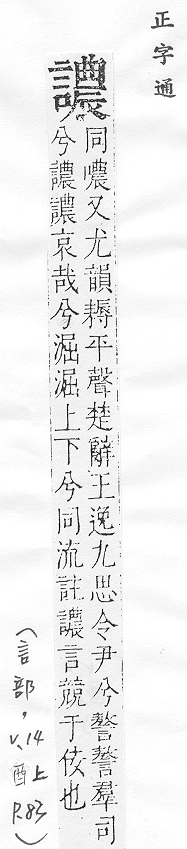 正字通
譨
同噥又尤韻耨平聲楚辭王逸九思令尹兮謷謷羣司
兮譨譨哀哉兮淈淈上下兮同流註譨言競于侫也
(言部,v.14酉上P.83)